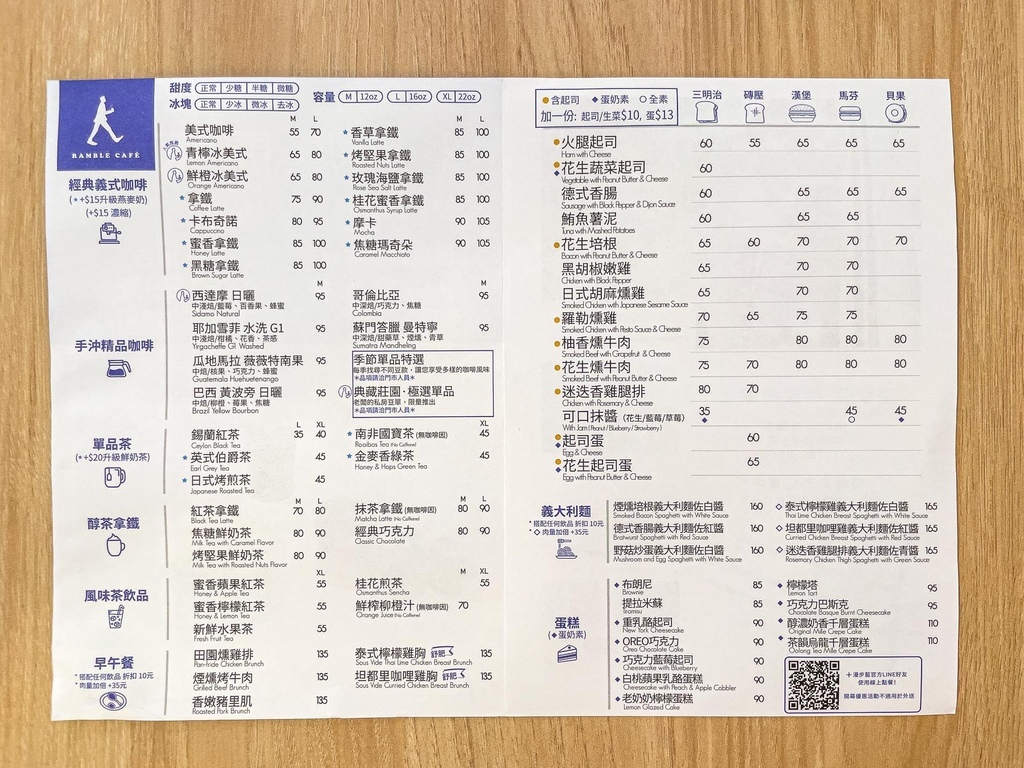 RAMBLE CAFÉ
甜度 正常 少糖 半糖 微糖
冰塊 正常 少冰 微冰 去冰
容量 M 12oz L 16oz XL 22oz
經典義式咖啡
(*+$15升級燕麥奶)
(+$15 濃縮)
M L
美式咖啡 55 70
Americano
青檸冰美式 65 80
Lemon Americano
鮮橙冰美式 65 80
Orange Americano
* 拿鐵 75 90
Coffee Latte
* 卡布奇諾 80 95
Cappuccino
* 蜜香拿鐵 85 100
Honey Latte
* 黑糖拿鐵 85 100
Brown Sugar Latte
M L
* 香草拿鐵 85 100
Vanilla Latte
* 烤堅果拿鐵 85 100
Roasted Nuts Latte
* 玫瑰海鹽拿鐵 85 100
Rose Sea Salt Latte
* 桂花蜜香拿鐵 85 100
Osmanthus Syrup Latte
* 摩卡 90 105
Mocha
* 焦糖瑪奇朵 90 105
Caramel Macchiato
手沖精品咖啡
M
西達摩 日曬 95
中淺焙/藍莓、百香果、蜂蜜
Sidamo Natural
耶加雪菲 水洗 G1 95
中淺焙/柑橘、花香、茶感
Yirgacheffe G1 Washed
瓜地馬拉 薇薇特南果 95
中焙/核果、巧克力、蜂蜜
Guatemala Huehuetenango
巴西 黃波旁 日曬 95
中焙/柳橙、莓果、焦糖
Brazil Yellow Bourbon
M
哥倫比亞 95
中深焙/巧克力、焦糖
Colombia
蘇門答臘 曼特寧 95
中深焙/甜藥草、煙燻、青草
Sumatra Mandheling
季節單品特選
每季找尋不同豆款，讓您享受多樣的咖啡風味
*品項請洽門市人員*
典藏莊園·極選單品
老闆的私房豆單，限量推出
*品項請洽門市人員*
單品茶
(*+$20升級鮮奶茶)
L XL
錫蘭紅茶 35 40
Ceylon Black Tea
* 英式伯爵茶 45
Earl Grey Tea
* 日式烤煎茶 45
Japanese Roasted Tea
XL
* 南非國寶茶 (無咖啡因) 45
Rooibos Tea (No Caffeine)
* 金麥香綠茶 45
Honey & Hops Green Tea
醇茶拿鐵
M L
紅茶拿鐵 70 80
Black Tea Latte
焦糖鮮奶茶 80 90
Milk Tea with Caramel Flavor
烤堅果鮮奶茶 80 90
Milk Tea with Roasted Nuts Flavor
M L
抹茶拿鐵 (無咖啡因) 80 90
Matcha Latte (No Caffeine)
經典巧克力 80 90
Classic Chocolate
風味茶飲品
XL
蜜香蘋果紅茶 55
Honey & Apple Tea
蜜香檸檬紅茶 55
Honey & Lemon Tea
新鮮水果茶 55
Fresh Fruit Tea
M XL
桂花煎茶 55
Osmanthus Sencha
鮮榨柳橙汁 (無咖啡因) 70
Orange Juice (No Caffeine)
早午餐
*搭配任何飲品 折扣 10元
*肉量加倍 +35元
田園燻雞排 135
Pan-fride Chicken Brunch
煙燻烤牛肉 135
Grilled Beef Brunch
香嫩豬里肌 135
Roasted Pork Brunch
泰式檸檬雞胸 舒肥 135
Sous Vide Thai Lime Chicken Breast Brunch
坦都里咖哩雞胸 舒肥 135
Sous Vide Curried Chicken Breast Brunch
● 含起司 ◆ 蛋奶素 ○ 全素
加一份: 起司/生菜$10, 蛋$13
三明治 磚壓 漢堡 馬芬 貝果
● 火腿起司 60 55 65 65 65
Ham with Cheese
● ◆ 花生蔬菜起司 60
Vegetable with Peanut Butter & Cheese
德式香腸 60 65 65 65
Sausage with Black Pepper & Dijon Sauce
鮪魚薯泥 60 65 65
Tuna with Mashed Potatoes
● 花生培根 65 60 70 70 70
Bacon with Peanut Butter & Cheese
黑胡椒嫩雞 65 70 70
Chicken with Black Pepper
日式胡麻燻雞 65 70 70
Smoked Chicken with Japanese Sesame Sauce
● 羅勒燻雞 70 65 75 75
Smoked Chicken with Pesto Sauce & Cheese
● 柚香燻牛肉 75 80 80 80
Smoked Beef with Grapefruit & Cheese
● 花生燻牛肉 75 70 80 80 80
Smoked Beef with Peanut Butter & Cheese
● 迷迭香雞腿排 80 70
Chicken with Rosemary & Cheese
可口抹醬 (花生/藍莓/草莓) 35 ◆ 45 ○ 45 ◆
With Jam (Peanut / Blueberry / Strawberry)
● ◆ 起司蛋 60
Egg & Cheese
● ◆ 花生起司蛋 65
Egg with Peanut Butter & Cheese
義大利麵
*搭配任何飲品 折扣 10元
*◇ 肉量加倍 +35元
煙燻培根義大利麵佐白醬 160
Smoked Bacon Spaghetti with White Sauce
德式香腸義大利麵佐紅醬 160
Bratwurst Spaghetti with Red Sauce
野菇炒蛋義大利麵佐白醬 160
Mushroom and Egg Spaghetti with White Sauce
◇ 泰式檸檬雞義大利麵佐白醬 165
Thai Lime Chicken Breast Spaghetti with White Sauce
◇ 坦都里咖哩雞義大利麵佐紅醬 165
Curried Chicken Breast Spaghetti with Red Sauce
◇ 迷迭香雞腿排義大利麵佐青醬 165
Rosemary Chicken Thigh Spaghetti with Green Sauce
蛋糕
(◆ 蛋奶素)
◆ 布朗尼 85
Brownie
提拉米蘇 85
Tiramisu
◆ 重乳酪起司 90
New York Cheesecake
◆ OREO巧克力 90
Oreo Chocolate Cake
◆ 巧克力藍莓起司 90
Cheesecake with Blueberry
◆ 白桃蘋果乳酪蛋糕 90
Cheesecake with Peach & Apple Cobbler
◆ 老奶奶檸檬蛋糕 90
Lemon Glazed Cake
◆ 檸檬塔 95
Lemon Tart
◆ 巧克力巴斯克 95
Chocolate Basque Burnt Cheesecake
◆ 醇濃奶香千層蛋糕 110
Original Mille Crepe Cake
◆ 茶韻烏龍千層蛋糕 110
Oolong Tea Mille Crepe Cake
+ 漫步藍官方LINE好友
使用線上點餐!
開幕優惠活動不適用於外送